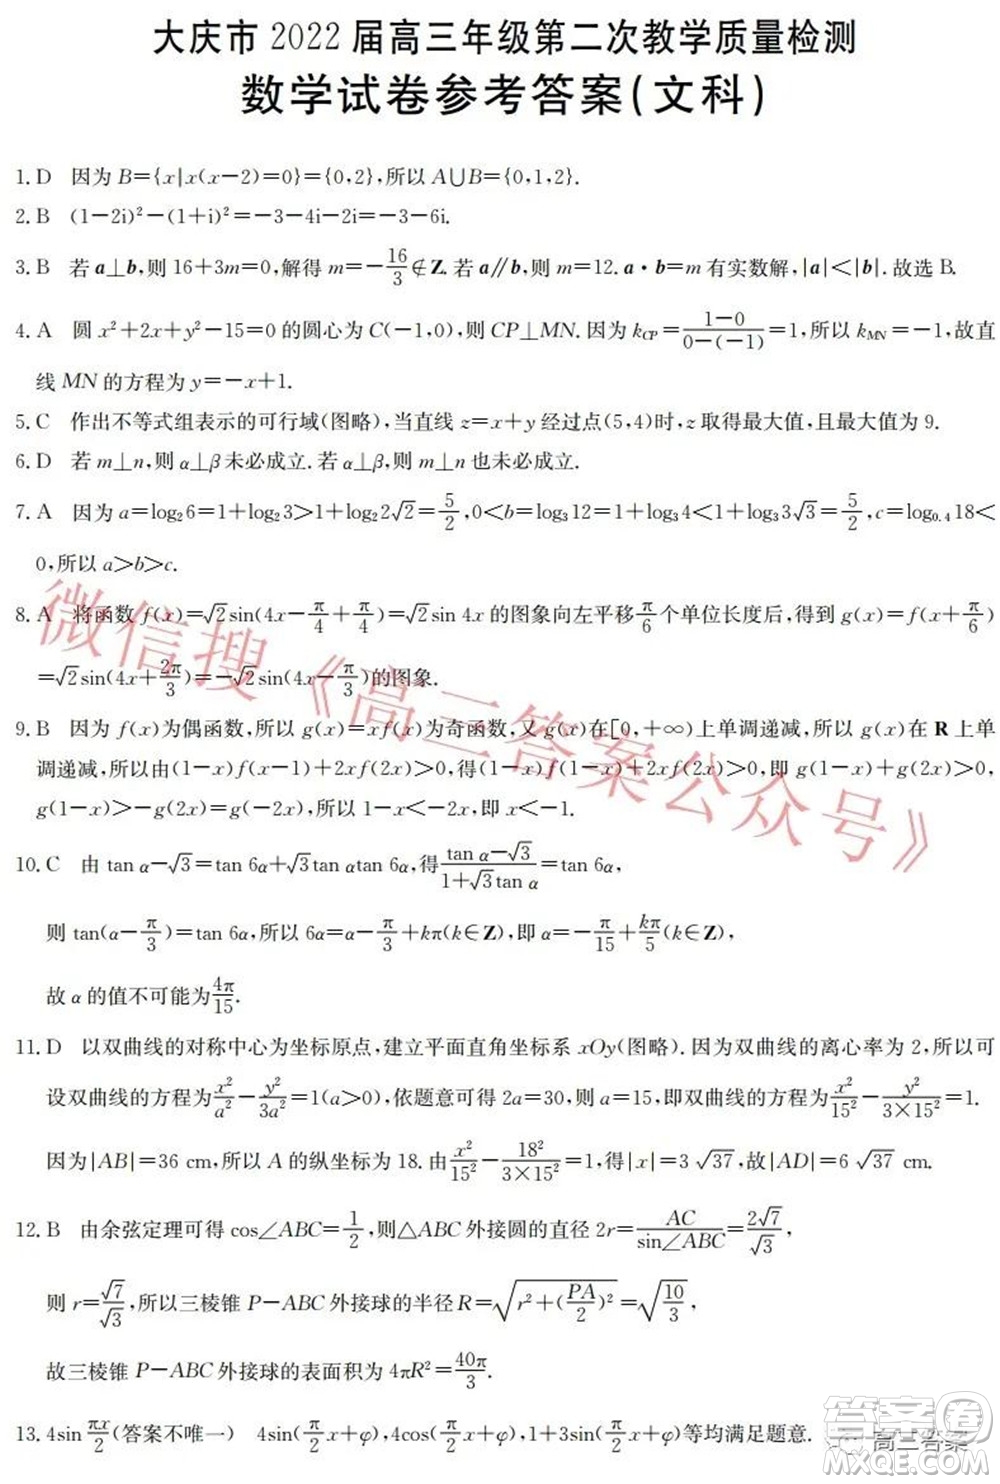 大庆市 2022 届高三年级第二次教学质量检测
数学试卷参考答案(文科)
1. D 因为 B={x|x(x-2)=0}={0,2},所以 A∪B={0,1,2}.
2. B (1-2i)²-(1+i)²=-3-4i-2i=-3-6i.
3. B 若 a⊥b,则 16+3m=0,解得 m=-16/3∉Z. 若 a∥b,则 m=12. a·b=m 有实数解,|a|<|b|. 故选 B.
4. A 圆 x²+2x+y²-15=0 的圆心为 C(-1,0),则 CP⊥MN. 因为 k_CP=(1-0)/(0-(-1))=1,所以 k_MN=-1,故直
线 MN 的方程为 y=-x+1.
5. C 作出不等式组表示的可行域(图略),当直线 z=x+y 经过点(5,4)时,z 取得最大值,且最大值为 9.
6. D 若 m⊥n,则 α⊥β 未必成立. 若 α⊥β,则 m⊥n 也未必成立.
7. A 因为 a=log₂6=1+log₂3>1+log₂2√2=5/2,0<b=log₃12=1+log₃4<1+log₃3√3=5/2,c=log₀.₄18<
0,所以 a>b>c.
8. A 将函数 f(x)=√2sin(4x-π/4+π/4)=√2sin 4x 的图象向左平移π/6个单位长度后,得到 g(x)=f(x+π/6)
=√2sin(4x+2π/3)=-√2sin(4x-π/3)的图象.
9. B 因为 f(x)为偶函数,所以 g(x)=xf(x)为奇函数,又 g(x)在[0,+∞)上单调递减,所以 g(x)在 R 上单
调递减,所以由(1-x)f(x-1)+2xf(2x)>0,得(1-x)f(1-x)+2xf(2x)>0,即 g(1-x)+g(2x)>0,
g(1-x)>-g(2x)=g(-2x),所以 1-x<-2x,即 x<-1.
10. C 由 tan α-√3=tan 6α+√3tan αtan 6α,得(tan α-√3)/(1+√3tan α)=tan 6α,
则 tan(α-π/3)=tan 6α,所以 6α=α-π/3+kπ(k∈Z),即 α=-π/15+kπ/5(k∈Z),
故 α 的值不可能为4π/15.
11. D 以双曲线的对称中心为坐标原点,建立平面直角坐标系 xOy(图略). 因为双曲线的离心率为 2,所以可
设双曲线的方程为x²/a²-y²/3a²=1(a>0),依题意可得 2a=30,则 a=15,即双曲线的方程为x²/15²-y²/(3×15²)=1.
因为|AB|=36 cm,所以 A 的纵坐标为 18. 由x²/15²-18²/(3×15²)=1,得|x|=3√37,故|AD|=6√37 cm.
12. B 由余弦定理可得 cos∠ABC=1/2,则△ABC 外接圆的直径 2r=AC/sin∠ABC=2√7/√3,
则 r=√7/√3,所以三棱锥 P-ABC 外接球的半径 R=√(r²+(PA/2)²)=√(10/3),
故三棱锥 P-ABC 外接球的表面积为 4πR²=40π/3.
13. 4sin πx/2(答案不唯一) 4sin(π/2 x+φ),4cos(π/2 x+φ),1+3sin(π/2 x+φ)等均满足题意.
微信搜《高三答案公众号》
答案圈
高三答案
MXQE.COM